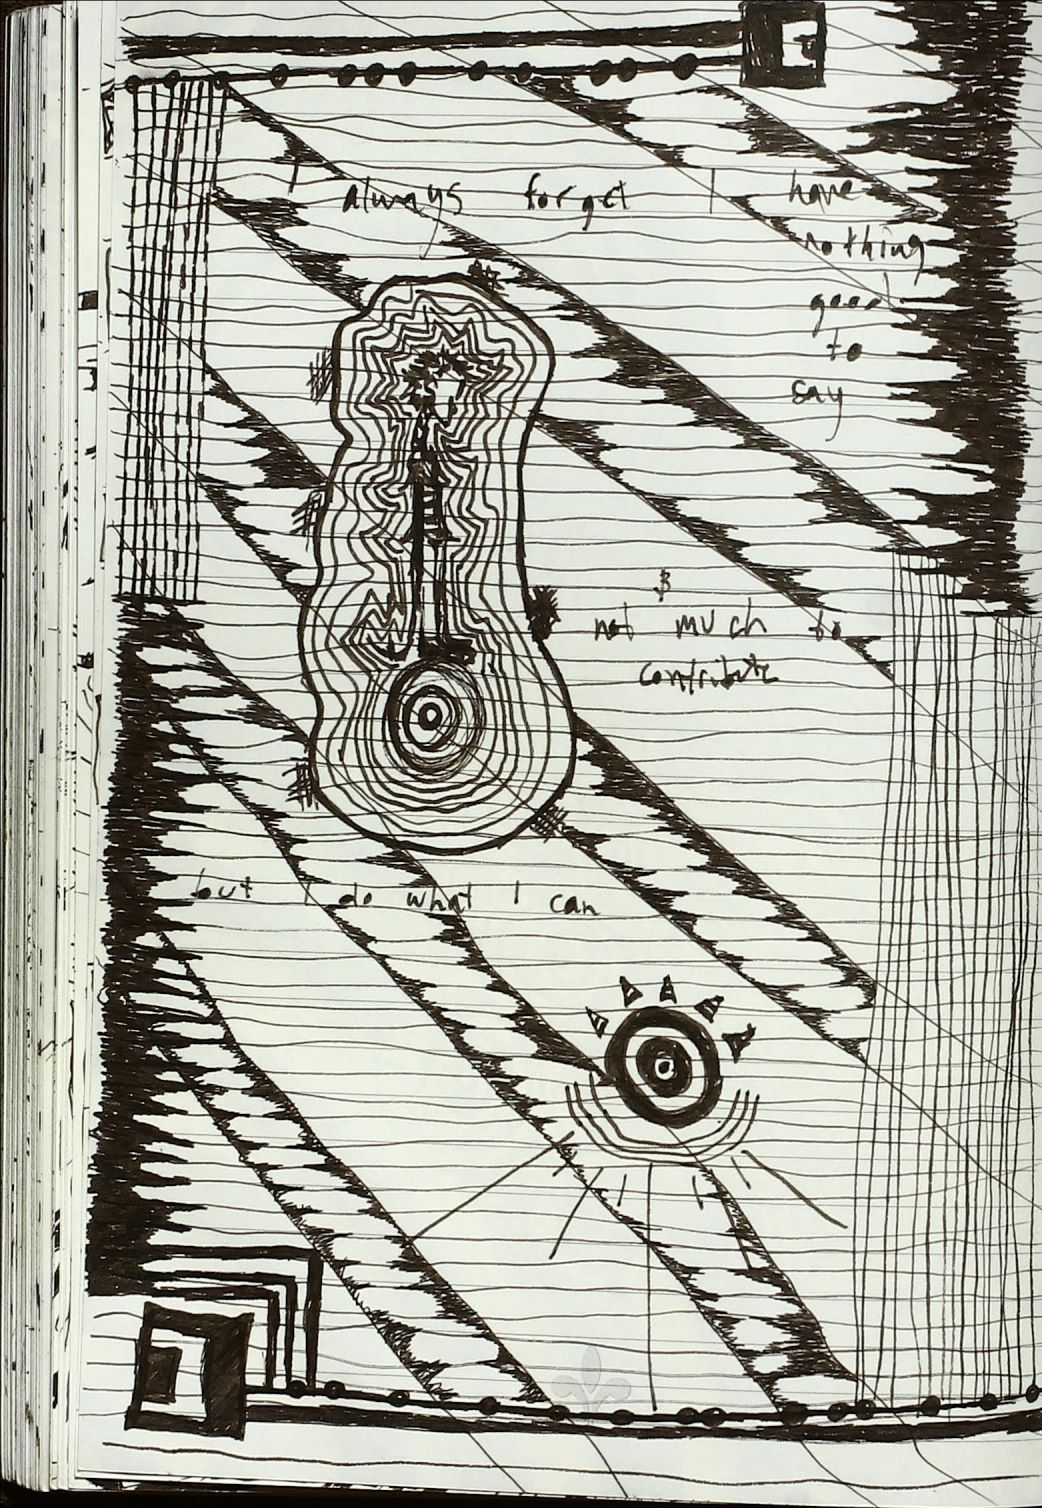 I always forget I have
nothing
good
to
say
&
not much to
contribute
but I do what I can